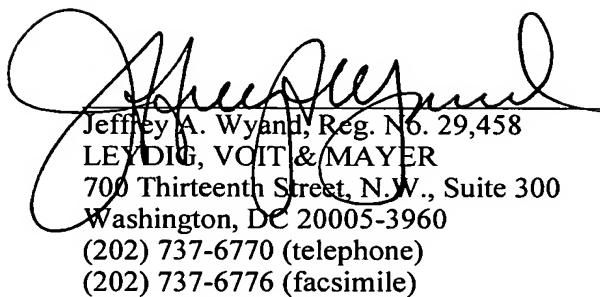 Jeffrey A. Wyand, Reg. No. 29,458
LEYDIG, VOIT & MAYER
700 Thirteenth Street, N.W., Suite 300
Washington, DC 20005-3960
(202) 737-6770 (telephone)
(202) 737-6776 (facsimile)